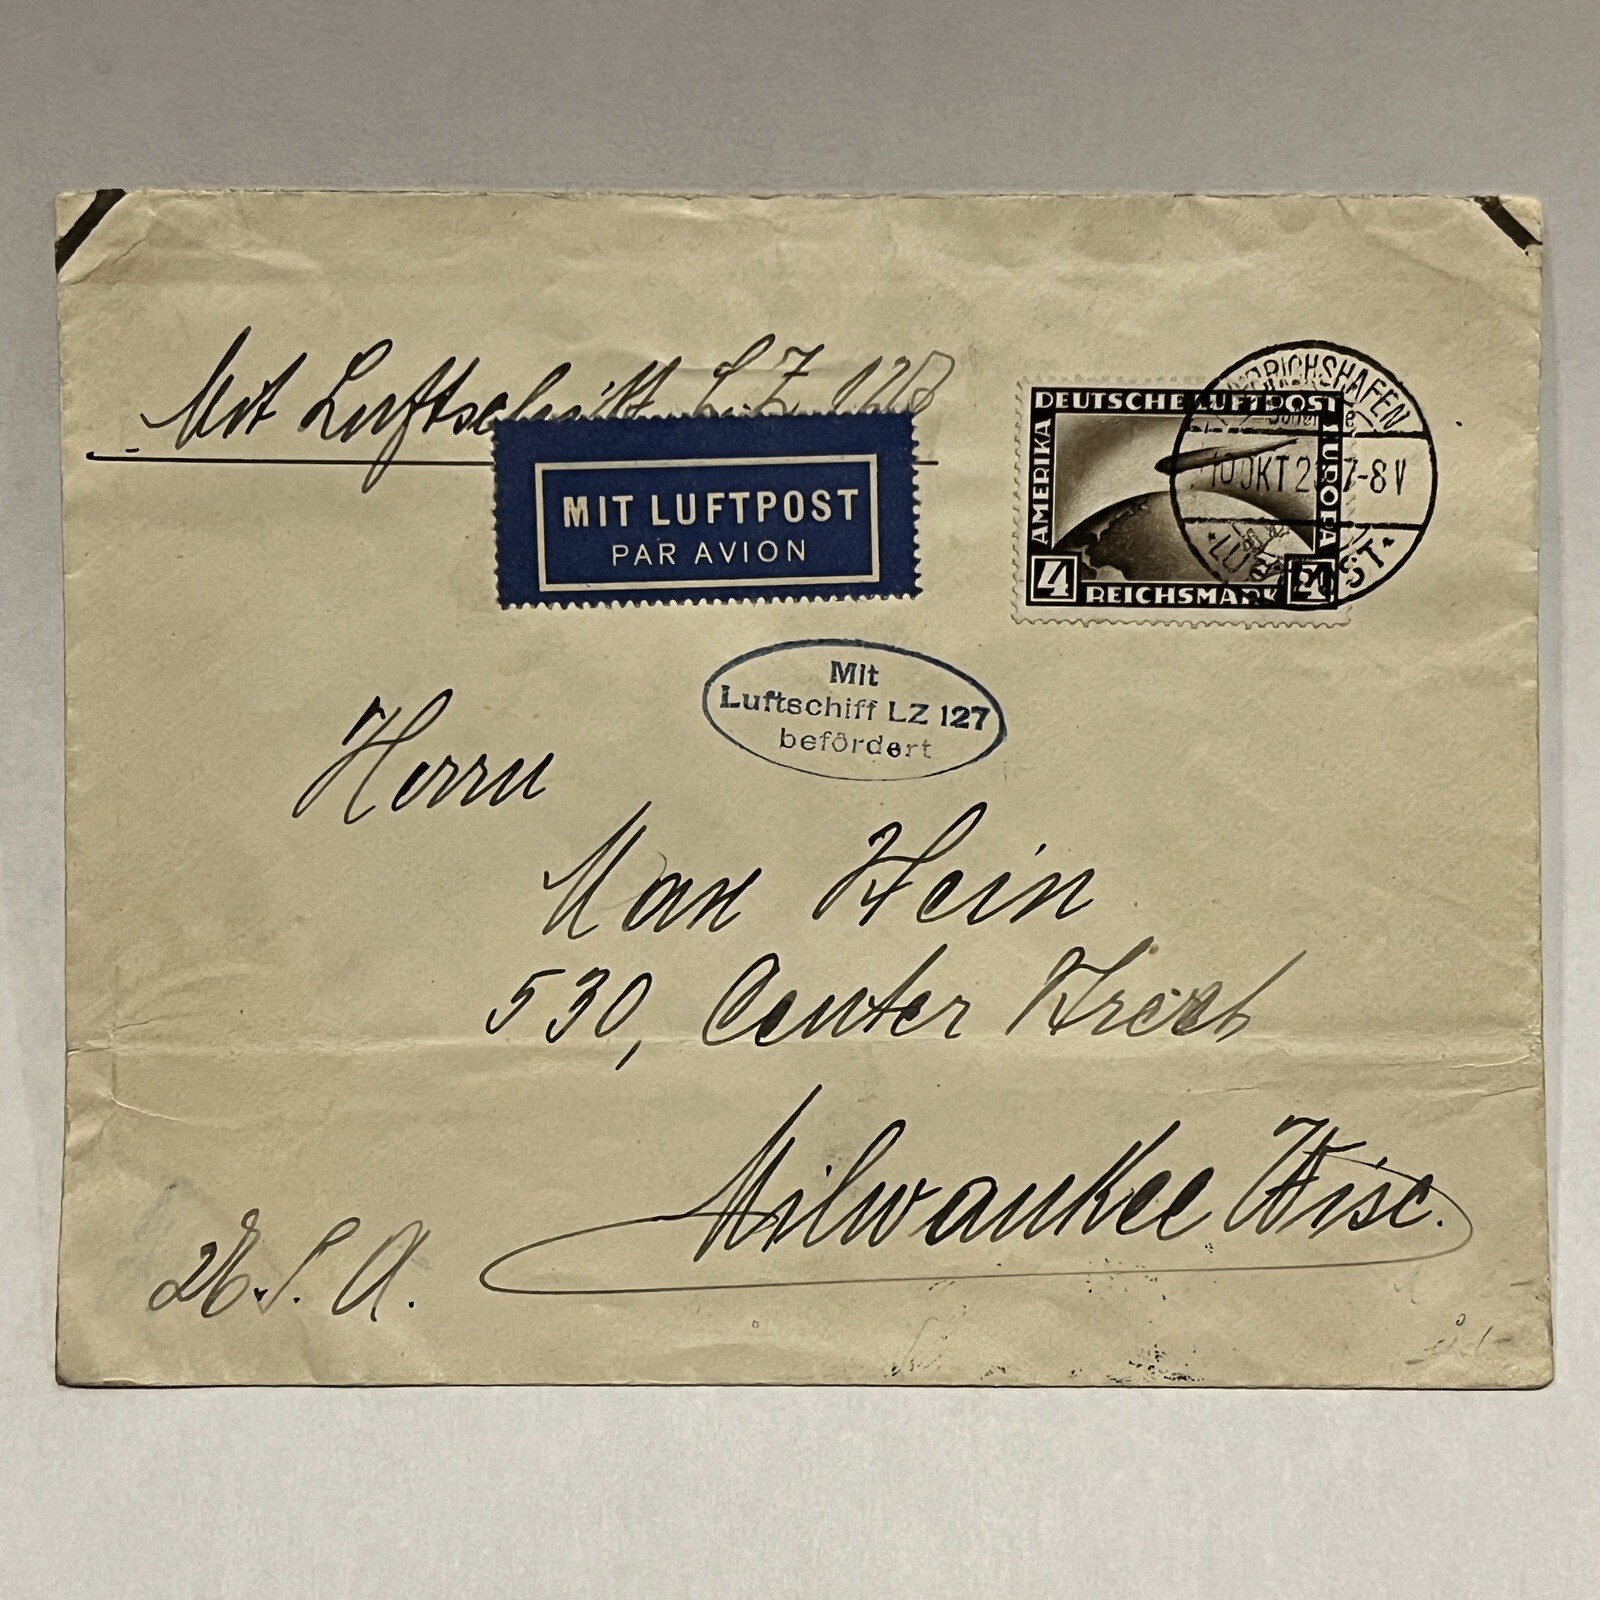 Mit Luftschiff L.Z. 128
MIT LUFTPOST
PAR AVION
DEUTSCHE LUFTPOST
AMERIKA
EUROPA
4 REICHSMARK 4
FRIEDRICHSHAFEN
10 OKT 28 7-8 V
* LUFTPOST *
Mit
Luftschiff LZ 127
befördert
Herrn
Max Hein
530, Center Street
Milwaukee Wisc.
U.S.A.